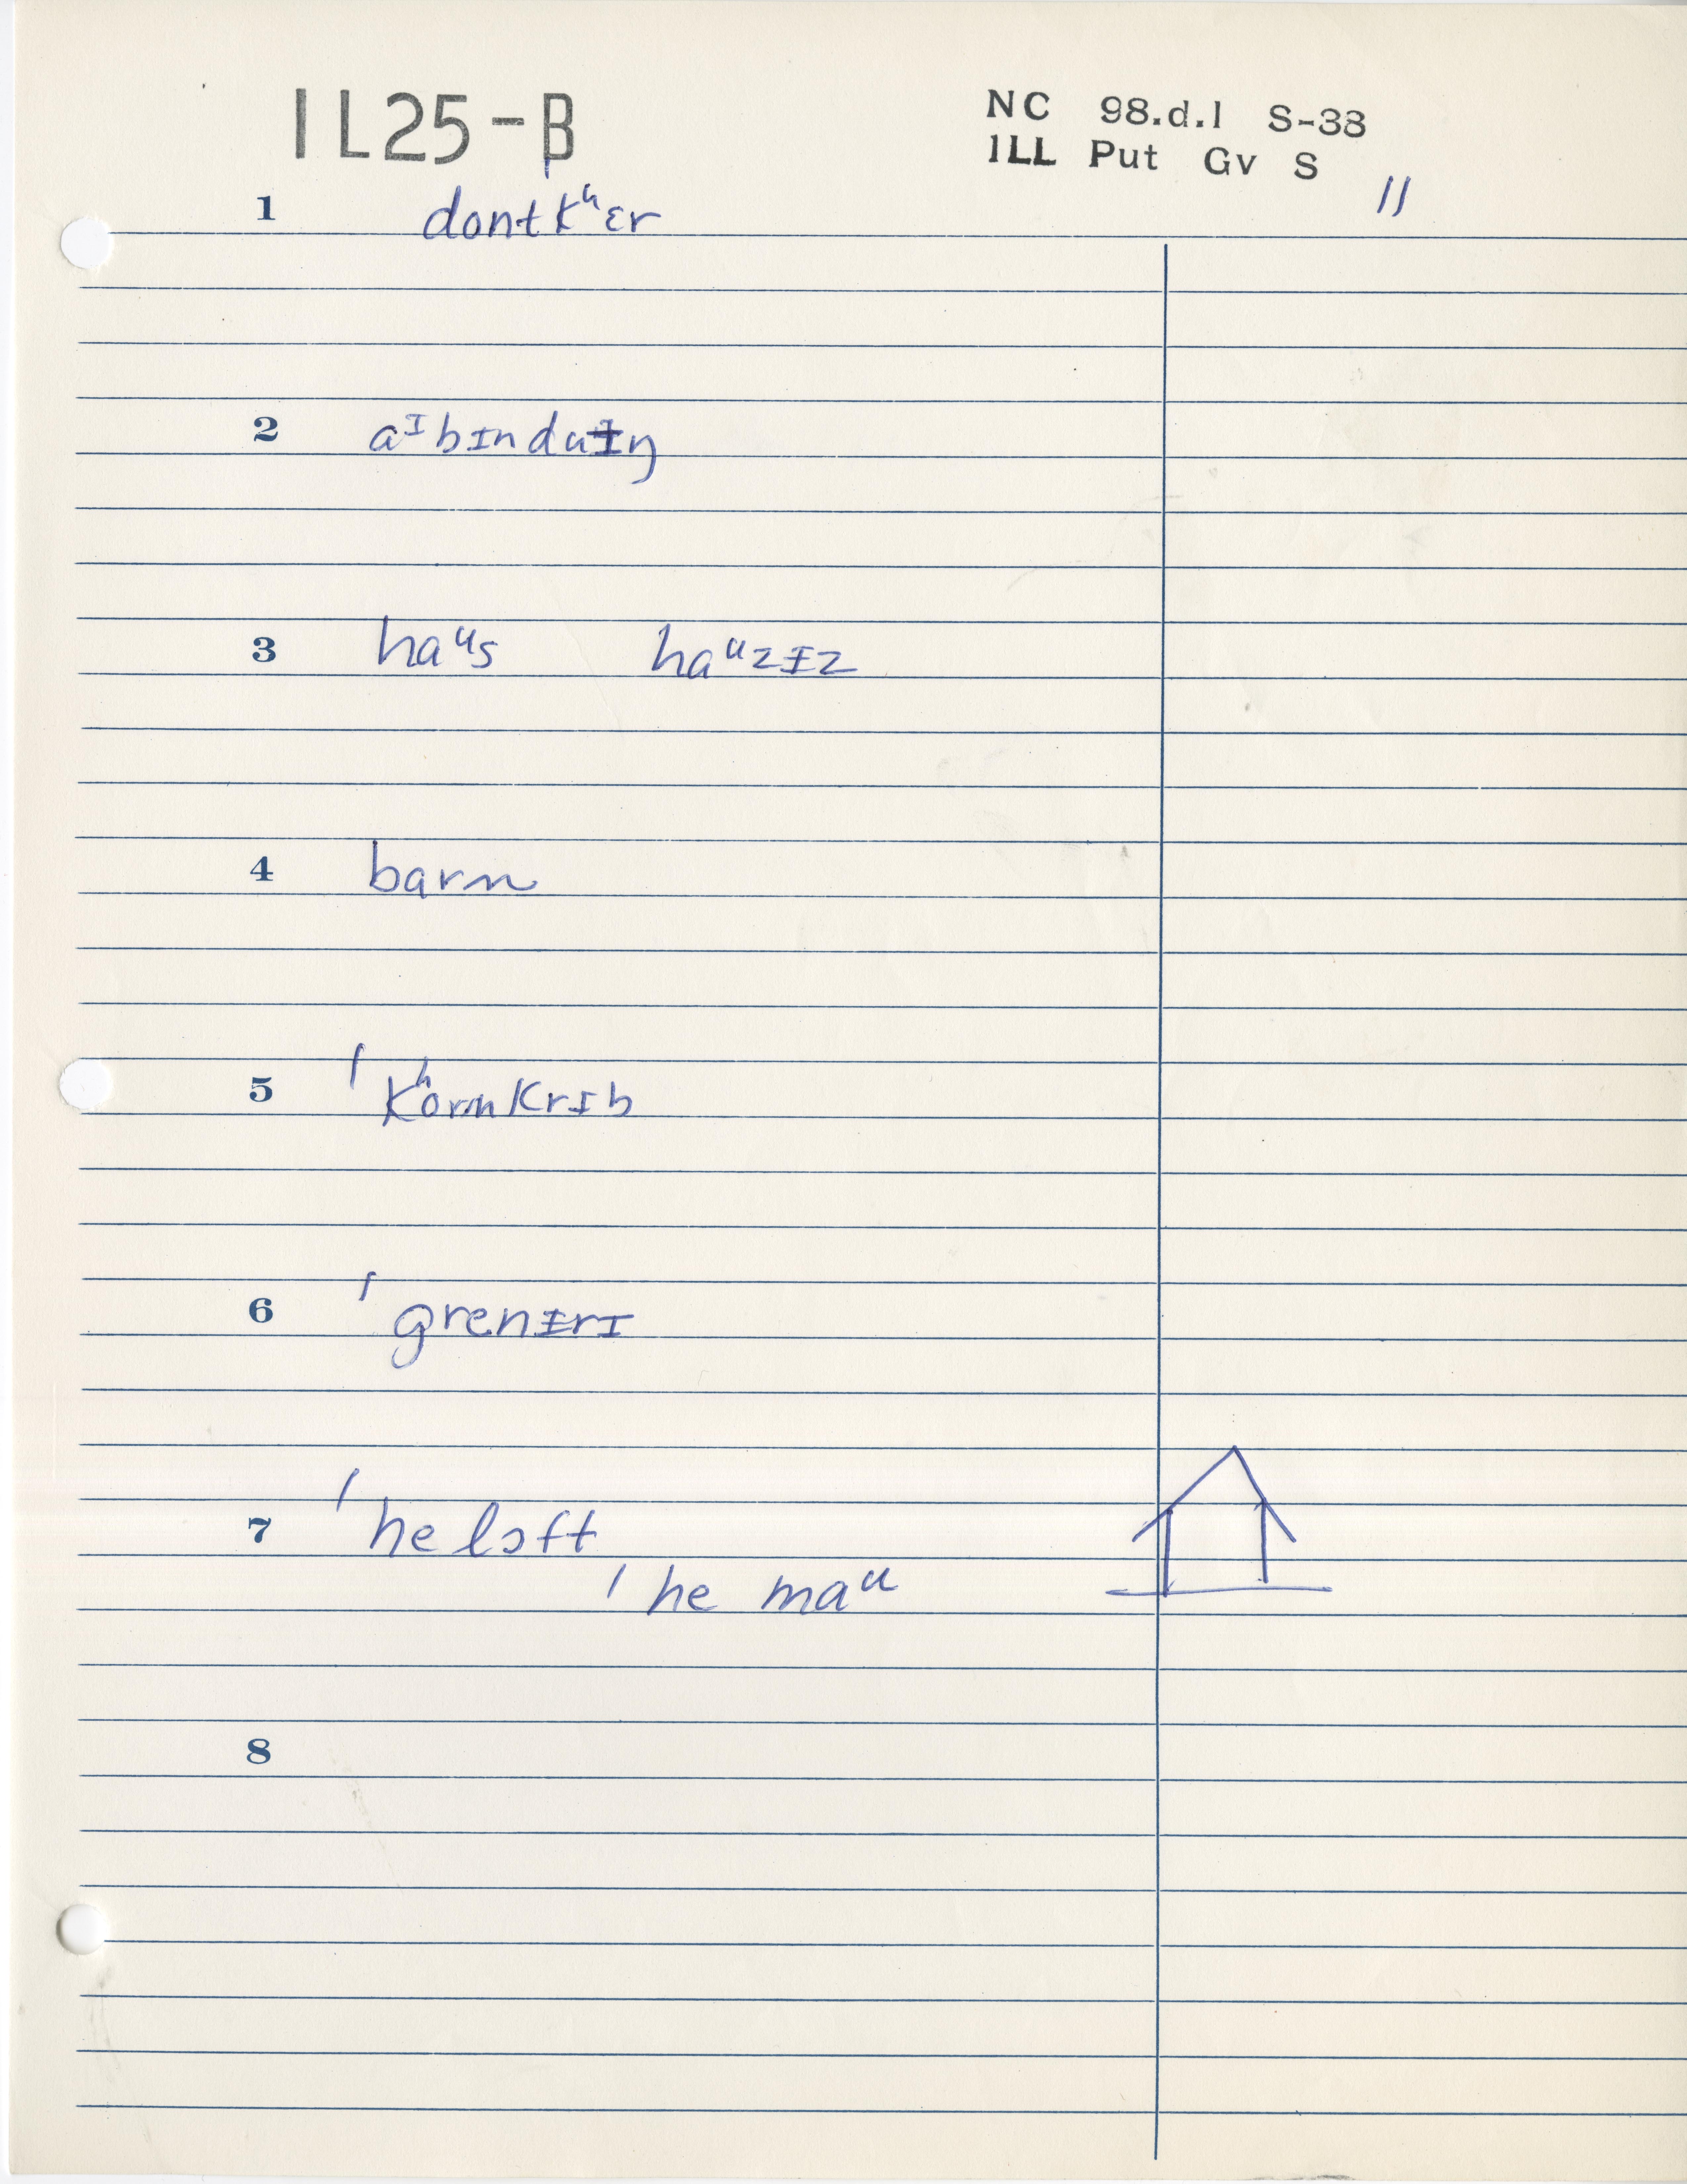 IL25-B
NC 98.d.1 S-38
ILL Put Gv S
11
1 dontkʰɛr
2 aᶦbɪnduɨŋ
3 haᵘs haᵘzɨz
4 barn
5 ˈkʰornkrɪb
6 ˈgrenɨrɪ
7 ˈhe lɔft
ˈhe maᵘ
8